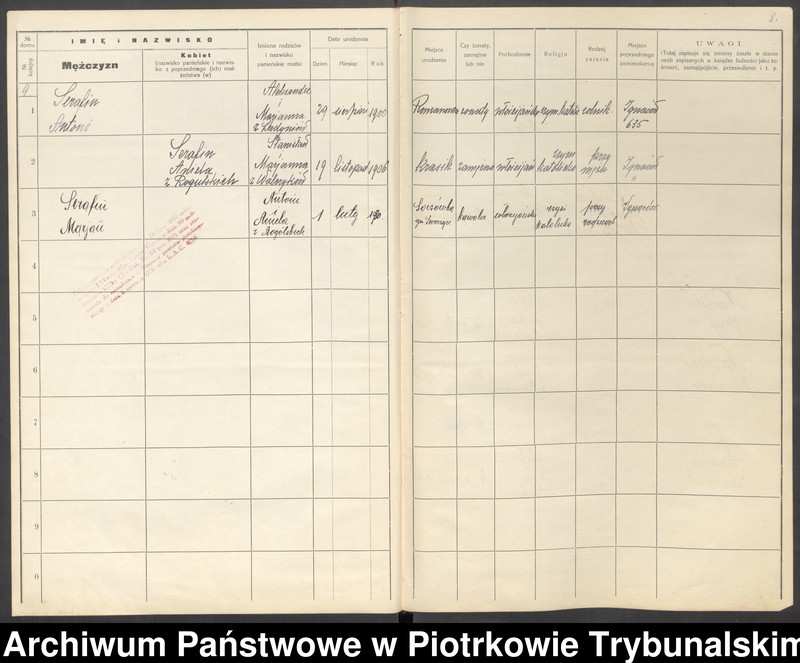 8.
№ domu
№ kolejny
IMIĘ i NAZWISKO
Mężczyzn
Kobiet
(nazwisko panieńskie i nazwis-
ko z poprzedniego (ich) mał-
żeństwa (w)
Imiona rodziców
i nazwisko
panieńskie matki
Data urodzenia
Dzień
Miesiąc
Rok
Miejsce
urodzenia
Czy żonaty,
zamężna
lub nie
Pochodzenie
Religja
Rodzaj
zajęcia
Miejsce
poprzedniego
zamieszkania
UWAGI.
(Tutaj zapisuje się zmiany zaszłe w stanie
osób zapisanych w księdze ludności jako to:
śmierć, zamążpójście, przesiedlenie i t. p.
9
1
Serafin
Antoni
Aleksander
i
Marjanna
29 sierpień 1900
żonaty włościjański rzym. katol. rolnik.
Ignaców
635
2
Serafin
Aniela
z Rogulskich
Stanisław
Marjanna
19 listopad 1906
Krasik zamężna włościjań rzym katolicka przy mężu Ignaców
3
Serafin
Marjan
Antoni
Aniela
z Rogólskich
1 luty
kawaler włościjański rzym katolicka przy rodzicach Ignaców
4
5
6
7
8
9
0
Archiwum Państwowe w Piotrkowie Trybunalskim